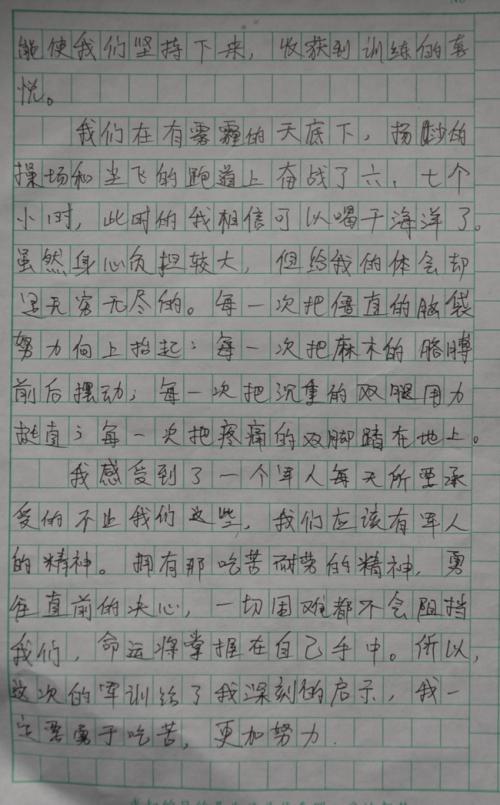 能使我们坚持下来，收获到训练的喜
悦。
我们在有雾霾的天底下，扬沙的
操场和尘飞的跑道上奋战了六、七个
小时，此时的我相信可以喝干海洋了。
虽然身心负担较大，但给我的体会却
是无穷无尽的。每一次把僵直的脑袋
努力向上抬起；每一次把麻木的胳膊
前后摆动；每一次把沉重的双腿用力
放直；每一次把疼痛的双脚踏在地上。
我感受到了一个军人每天所要承
受的不止我们这些，我们应该有军人
的精神。拥有那吃苦耐劳的精神，勇
往直前的决心，一切困难都不会阻挡
我们，命运将掌握在自己手中。所以，
这次的军训给了我深刻的启示，我一
定要勇于吃苦，更加努力.